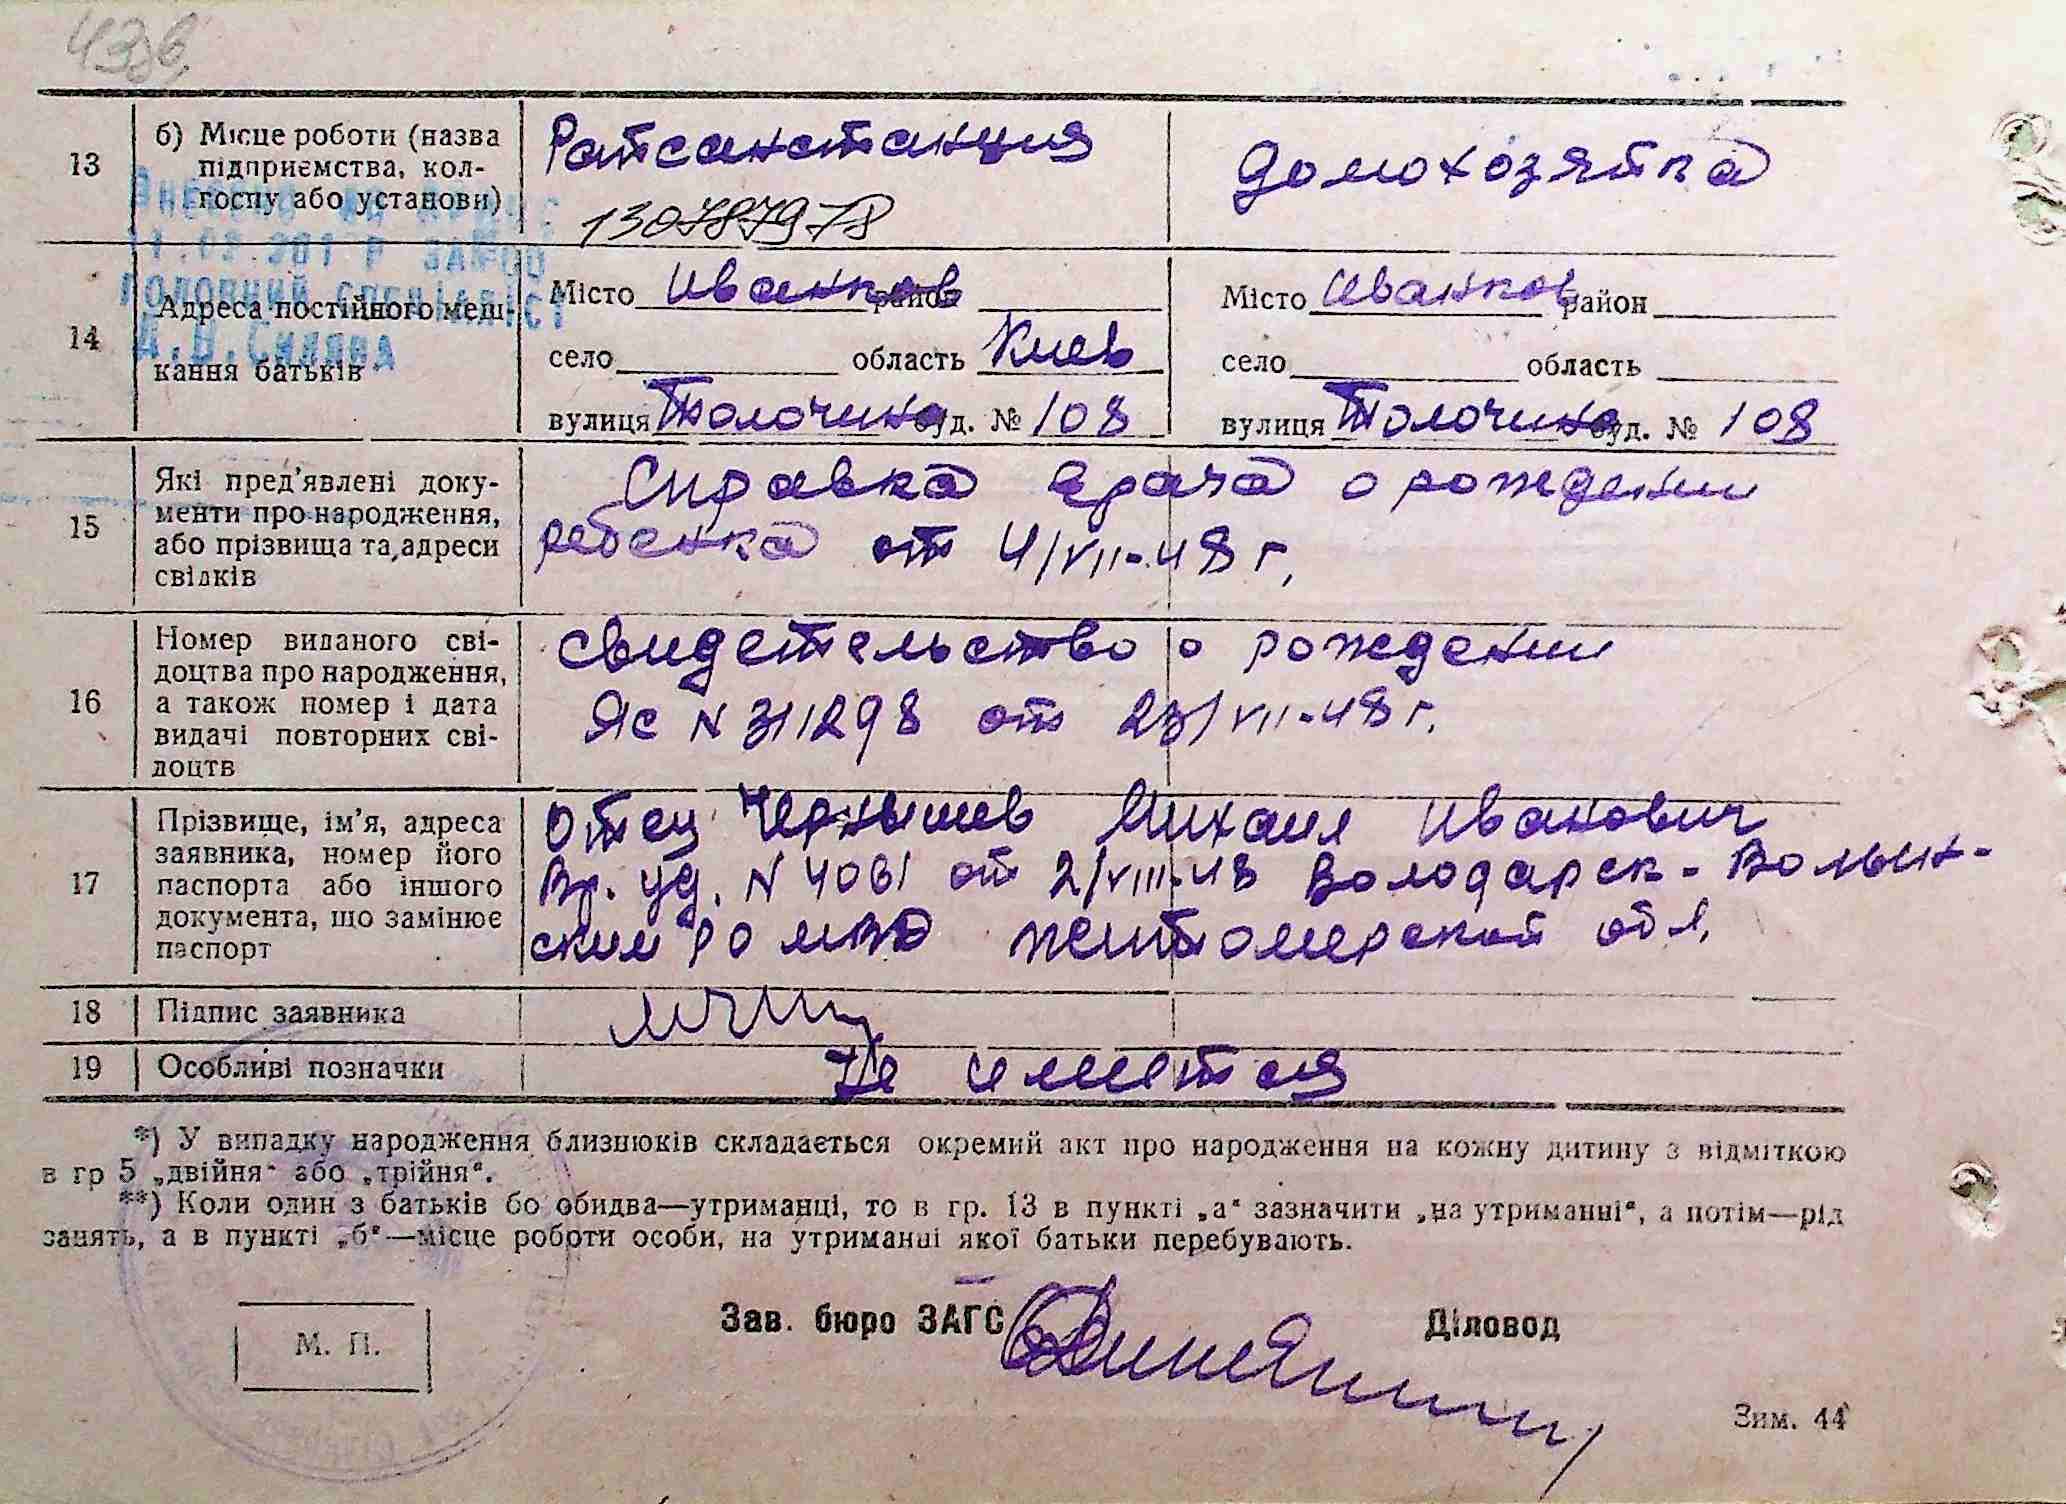 43зв.
13
б) Місце роботи (назва
підприємства, кол-
госпу або установи)
Ратсанстанция
130787978
домохозяйка
14
Адреса постійного меш-
кання батьків
Місто Иванков район
село область Киев
вулиця Толочина буд. № 108
Місто Иванков район
село область
вулиця Толочина буд. № 108
головний спеціаліст
15
Які пред’явлені доку-
менти про народження,
або прізвища та адреси
свідків
Справка врача о рождении
ребенка от 4/VII-48 г.
16
Номер виданого сві-
доцтва про народження,
а також номер і дата
видачі повторних сві-
доцтв
свидетельство о рождении
ЯС N 311298 от 23/VII-48 г.
17
Прізвище, ім’я, адреса
заявника, номер його
паспорта або іншого
документа, що замінює
паспорт
отец Чернышев Михаил Иванович
Вр. уд. N 4061 от 2/VIII-48 Володарск-Волын-
ским РО МВД житомерской обл.
18
Підпис заявника
19
Особливі позначки
Не имеется
*) У випадку народження близнюків складається окремий акт про народження на кожну дитину з відміткою
в гр 5 „двійня“ або „трійня“.
**) Коли один з батьків бо обидва—утриманці, то в гр. 13 в пункті „а“ зазначити „на утриманні“, а потім—рід
занять, а в пункті „б“—місце роботи особи, на утриманні якої батьки перебувають.
М. П.
Зав. бюро ЗАГС
Діловод
Зим. 44